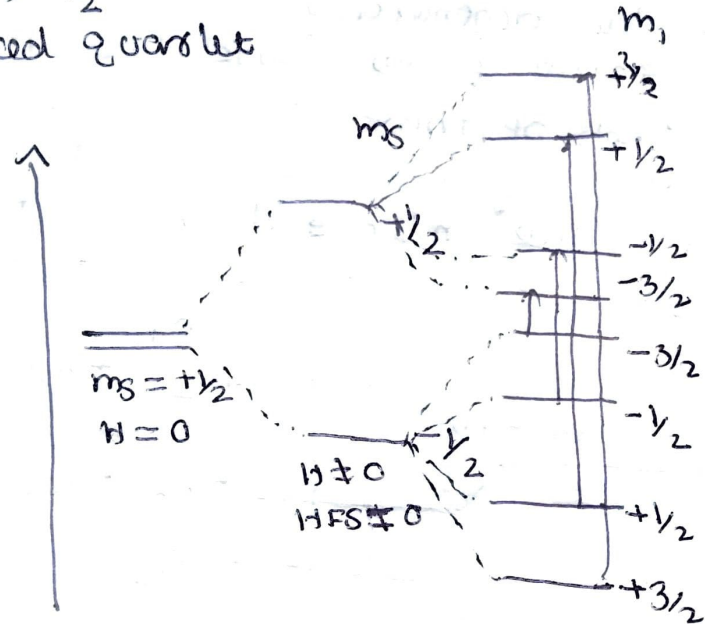 2
ced quarlet
m,
+3/2
ms
+1/2
+1/2
-1/2
-3/2
-3/2
ms = +1/2
H = 0
-1/2
-1/2
H ≠ 0
HFS ≠ 0
+1/2
+3/2